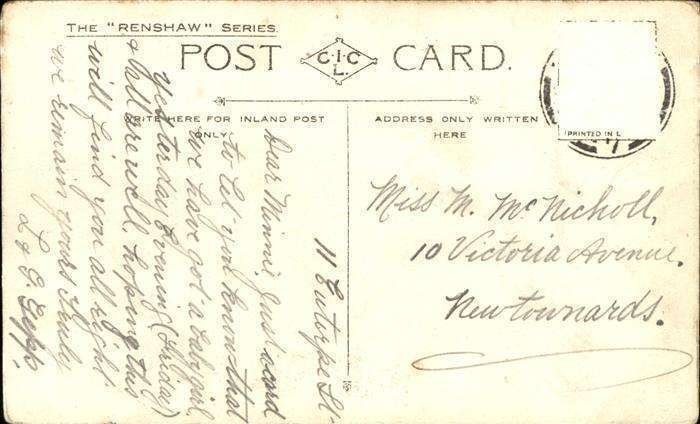 THE "RENSHAW" SERIES.
POST CARD.
C.I.C
L.
WRITE HERE FOR INLAND POST
ONLY.
ADDRESS ONLY WRITTEN
HERE
PRINTED IN
11 St.
Dear Minnie, Just a card
to let you know that
we have got a baby girl
Yesterday Evening (Friday)
& all are well, hoping this
will find you all right
we remain yours truly
L & E.
Miss M. McNicholl,
10 Victoria Avenue.
Newtownards.